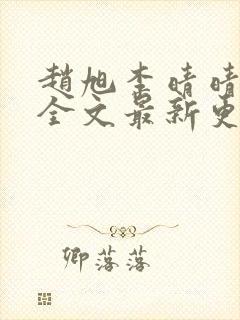 趙旭李晴晴
全文最新更
卿落落